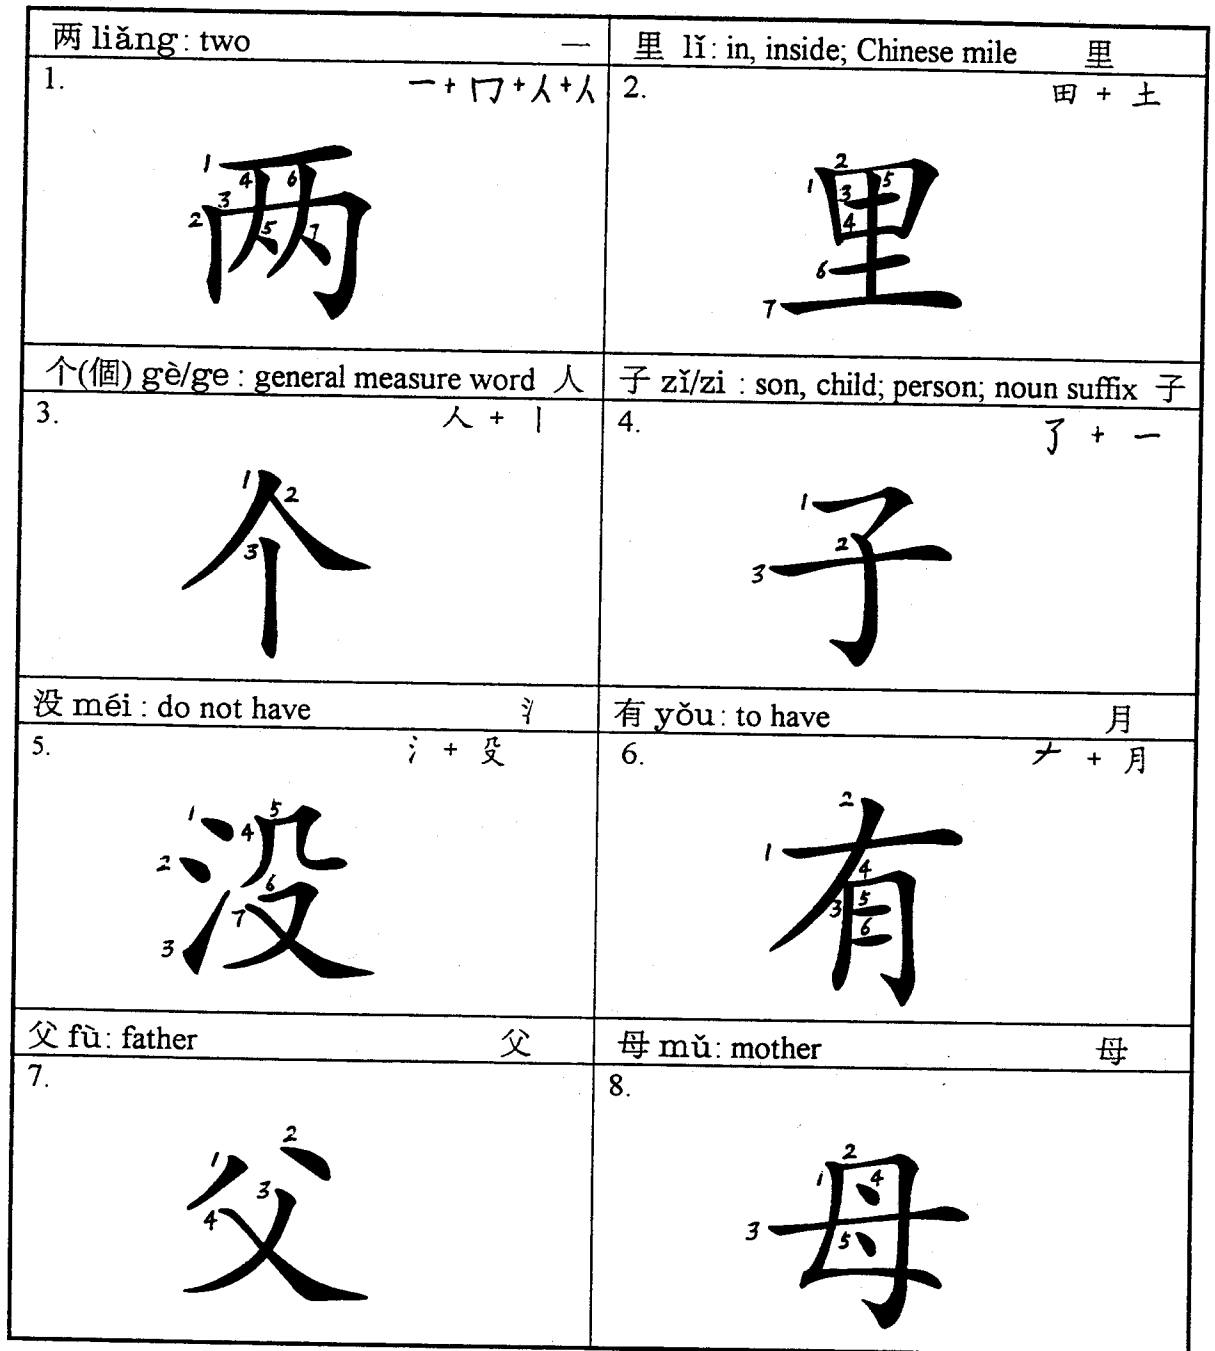 两 liǎng: two 一
1. 一 + 冂 + 人 + 人
两
1 2 3 4 5 6 7
里 lǐ: in, inside; Chinese mile 里
2. 田 + 土
里
1 2 3 4 5 6 7
个(個) gè/ge : general measure word 人
3. 人 + 丨
个
1 2 3
子 zǐ/zi : son, child; person; noun suffix 子
4. 了 + 一
子
1 2 3
没 méi : do not have 氵
5. 氵 + 殳
没
1 2 3 4 5 6 7
有 yǒu: to have 月
6. 𠂇 + 月
有
1 2 3 4 5 6
父 fù: father 父
7.
父
1 2 3 4
母 mǔ: mother 母
8.
母
1 2 3 4 5